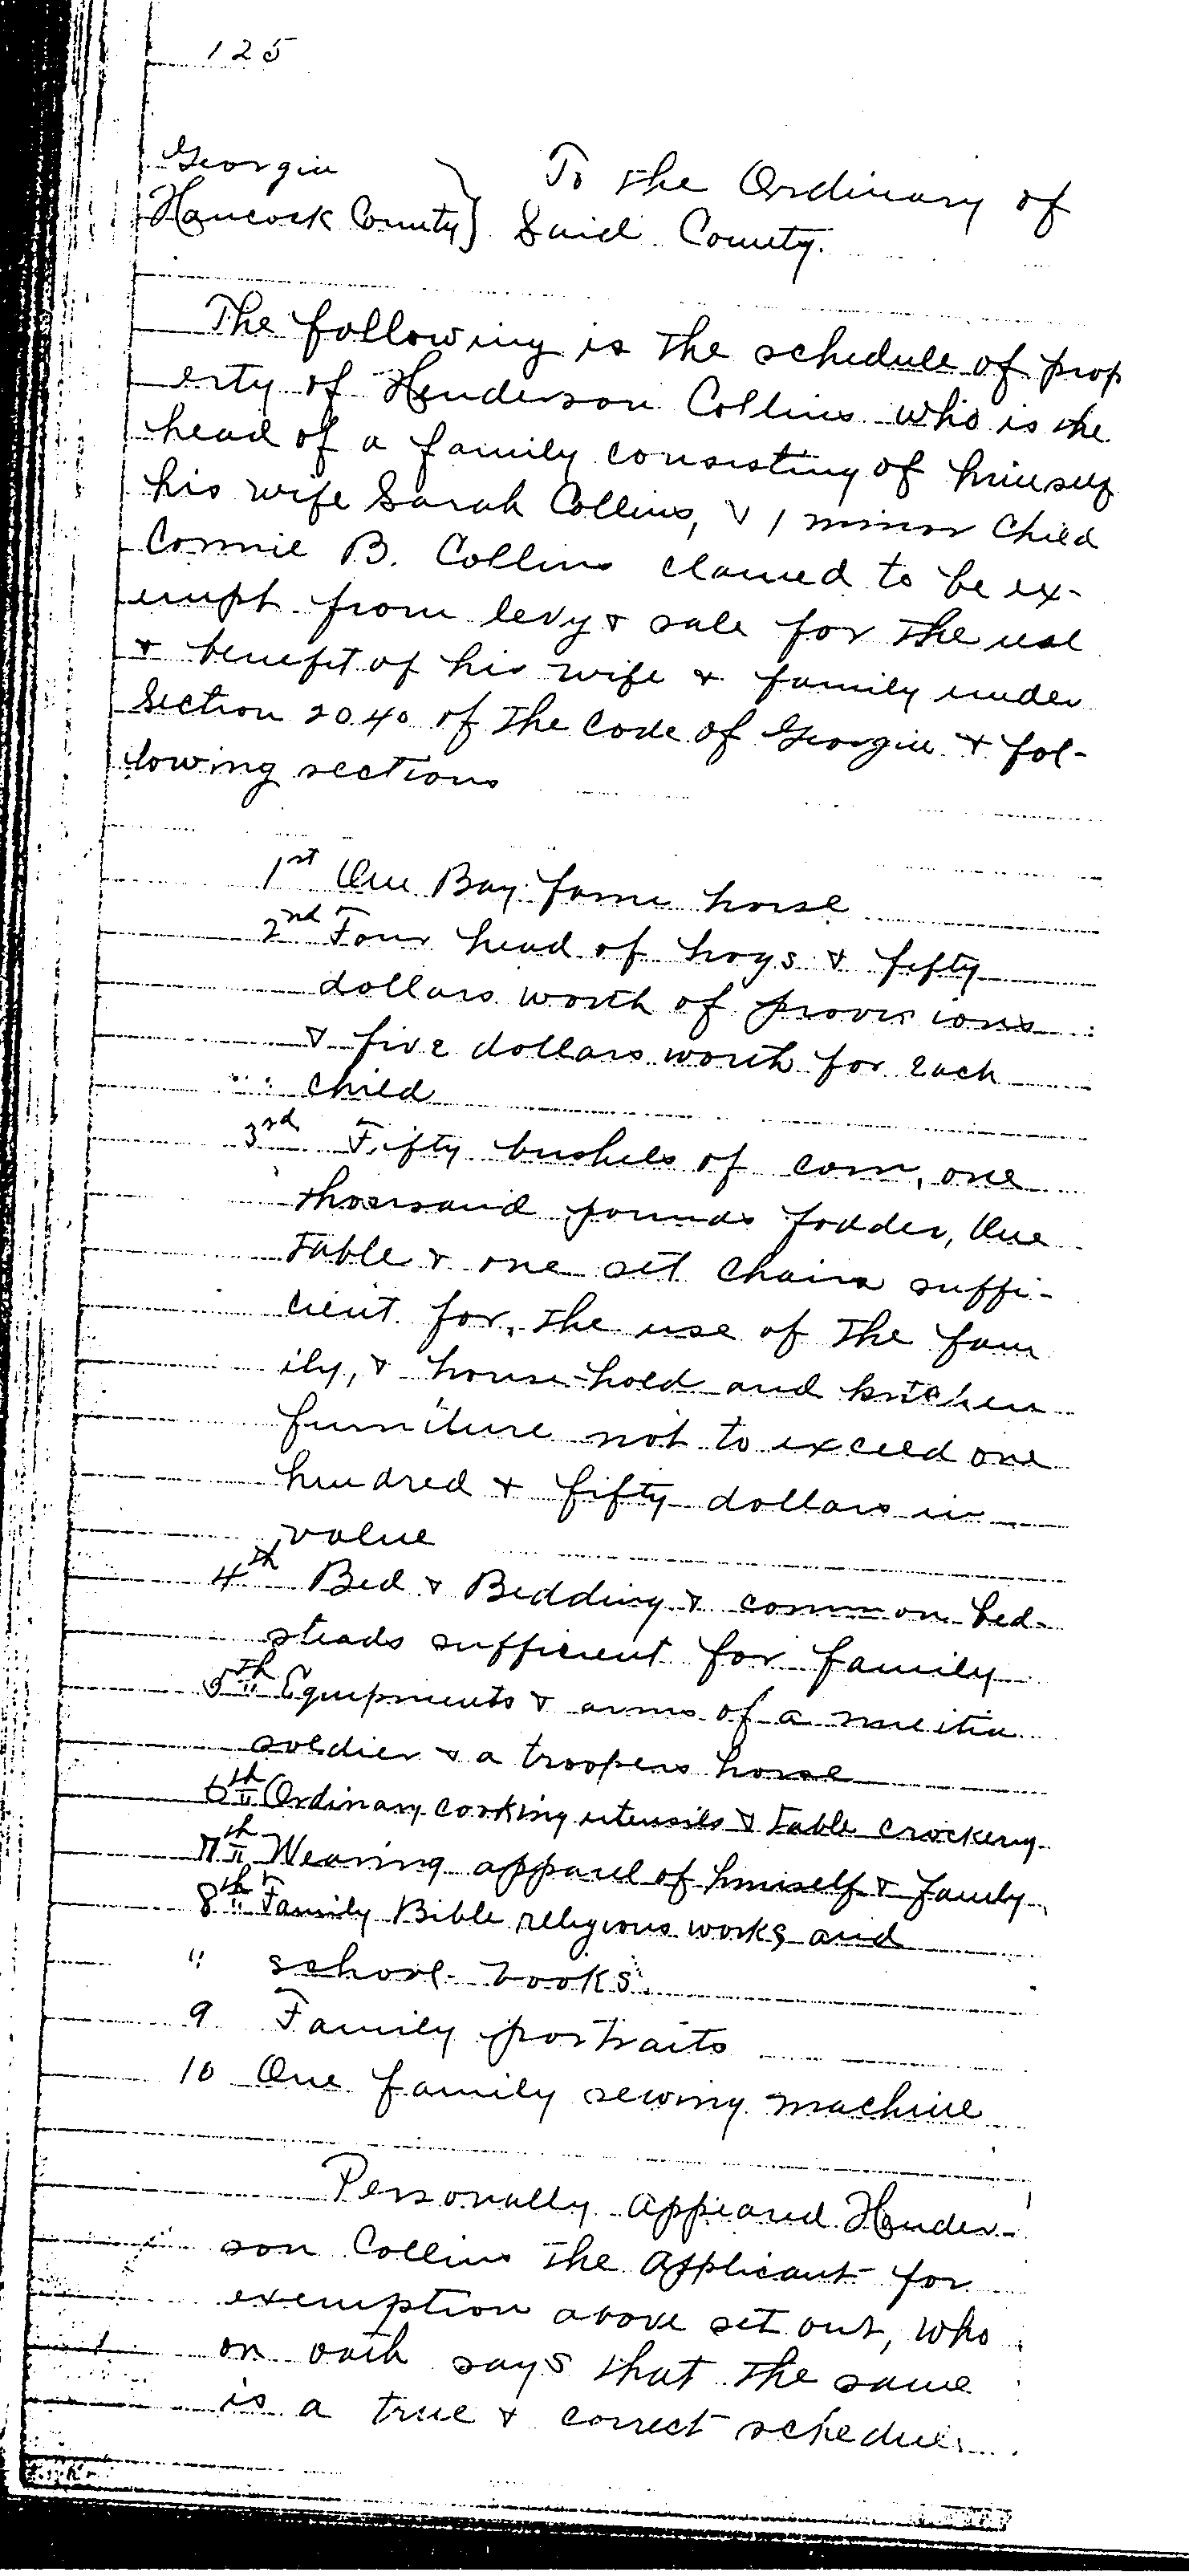 125
Georgia } To the Ordinary of
Hancock County } Said County.
The following is the schedule of prop
erty of Henderson Collins who is the
head of a family consisting of himself
his wife Sarah Collins, & 1 minor child
Connie B. Collins claimed to be ex-
empt from levy & sale for the use
& benefit of his wife & family under
Section 2040 of the Code of Georgia & fol-
lowing sections
1st One Bay farm horse
2nd Four head of hogs & fifty
dollars worth of provisions
& five dollars worth for each
child
3rd Fifty bushels of corn, one
thousand pounds fodder, One
table & one set chairs suffi-
cient for, the use of the fam
ily, & house-hold and kitchen
furniture not to exceed one
hundred & fifty dollars in
value
4th Bed & Bedding & common bed-
steads sufficient for family
5th Equipments & arms of a militia
soldier & a troopers horse
6th Ordinary cooking utensils & table crockery
7th Wearing apparel of himself & family
8th Family Bible religious works and
" school books.
9 Family portraits
10 One family sewing machine
Personally appeared Hender-
son Collins the applicant for
exemption above set out, who
on oath says that the same
is a true & correct schedule